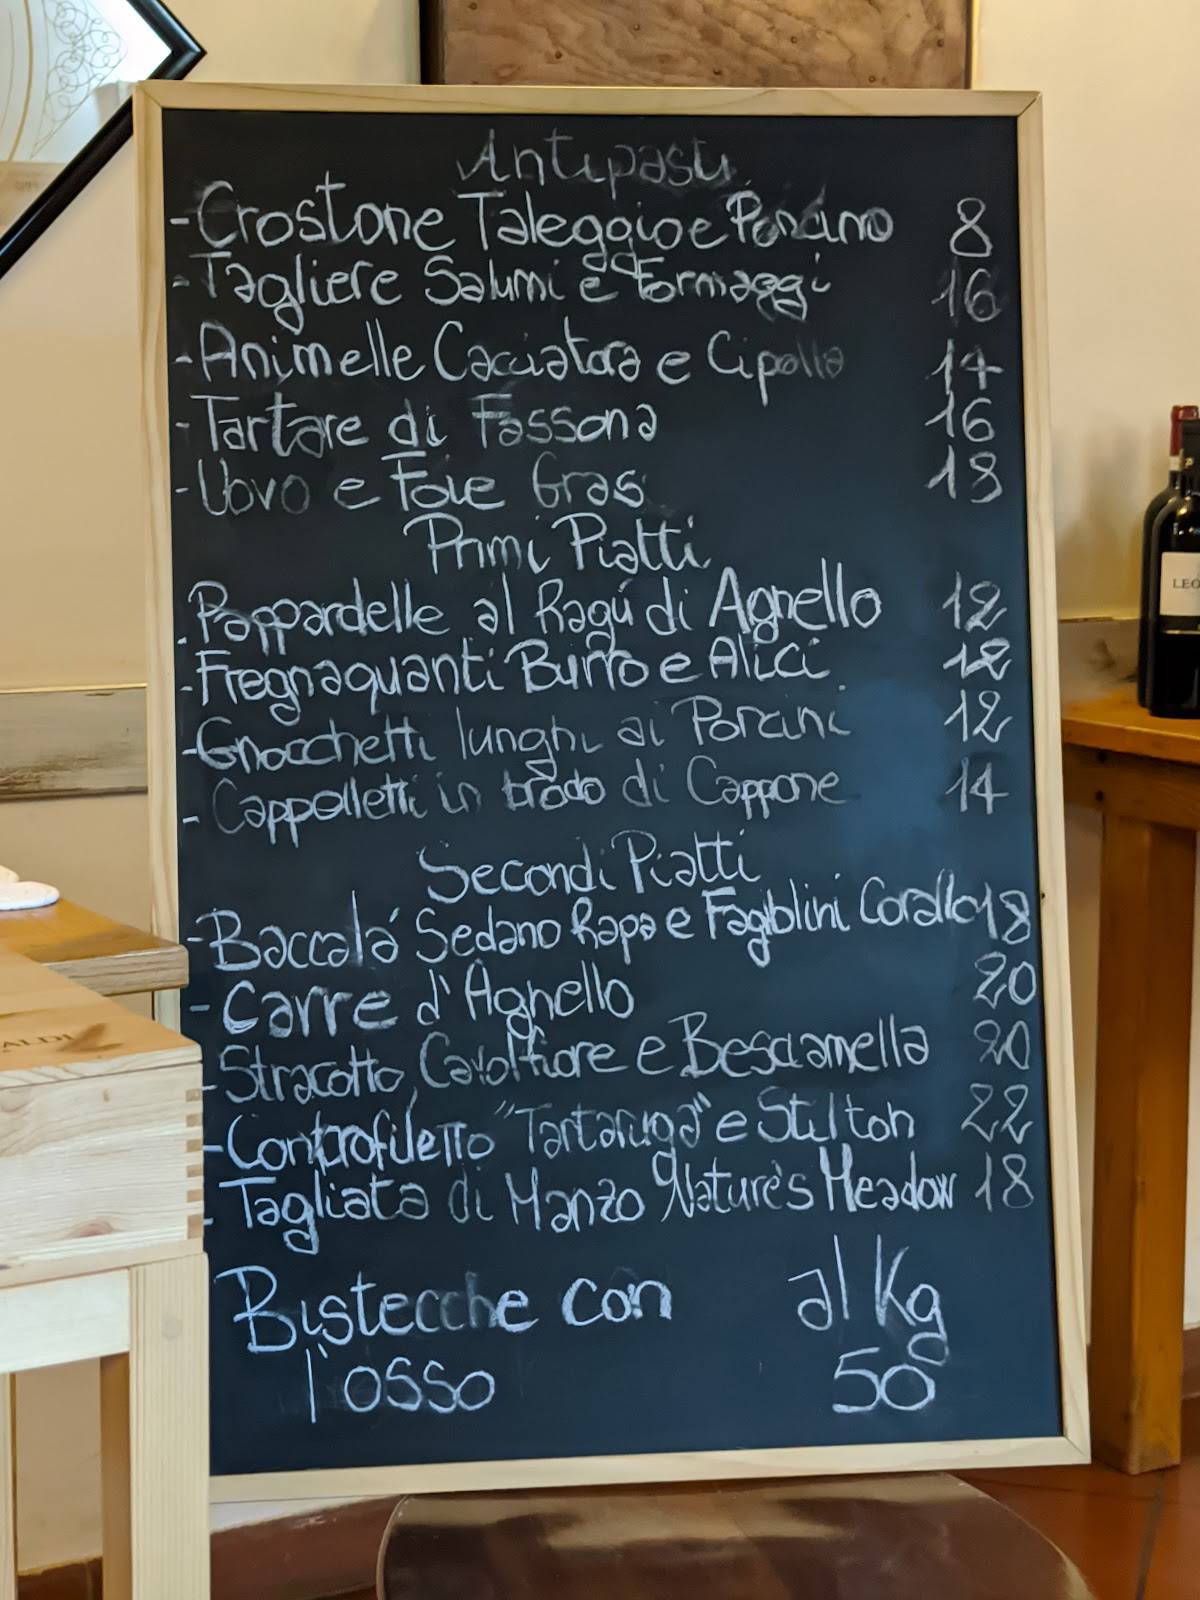 Antipasti
- Crostone Taleggio e Porcino 8
- Tagliere Salumi e Formaggi 16
- Animelle Cacciatora e Cipolla 14
- Tartare di Fassona 16
- Uovo e Foie Gras 18
Primi Piatti
- Pappardelle al Ragú di Agnello 12
- Fregnaquanti Burro e Alici 12
- Gnocchetti lunghi ai Porcini 12
- Cappelletti in brodo di Cappone 14
Secondi Piatti
- Baccalá Sedano Rapa e Fagiolini Corallo 18
- Carre d'Agnello 20
- Stracotto, Cavolfiore e Besciamella 20
- Controfiletto "Tartaruga" e Stilton 22
- Tagliata di Manzo Nature's Meadow 18
Bistecche con al Kg
l'osso 50
LEO